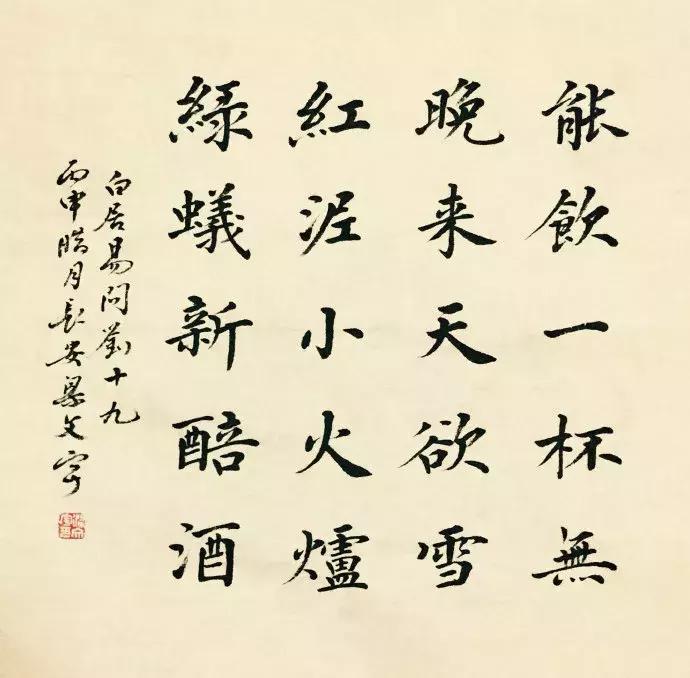 緑蟻新醅酒
紅泥小火爐
晚来天欲雪
能飲一杯無
白居易問劉十九
丙申腊月長安梁文